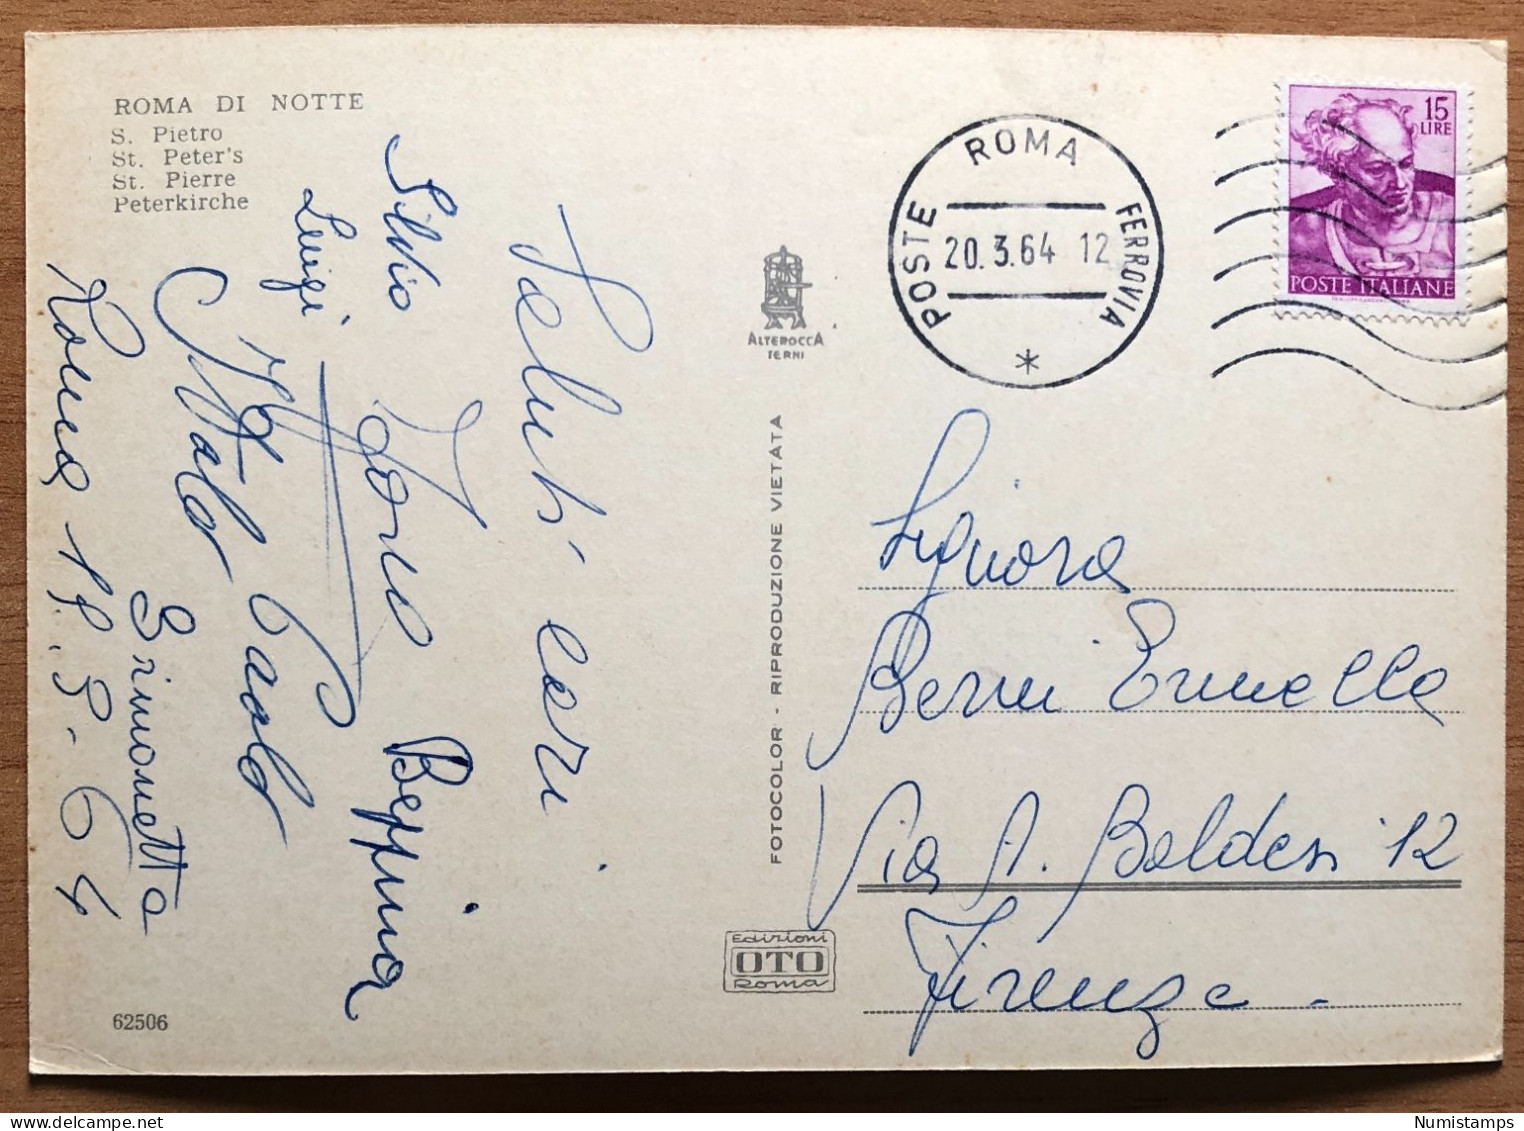 ROMA DI NOTTE
S. Pietro
St. Peter's
St. Pierre
Peterkirche
Saluti cari
Silvio
Luigi
Beppina
Paolo
Simonetta
Roma 18.3-64
62506
ALTEROCCA
TERNI
FOTOCOLOR - RIPRODUZIONE VIETATA
Edizioni
OTO
Roma
POSTE ROMA FERROVIA
20.3.64 12
*
15
LIRE
POSTE ITALIANE
Signora
Berni Ermella
Via A. Baldesi 12
Firenze -
Numistamps.com